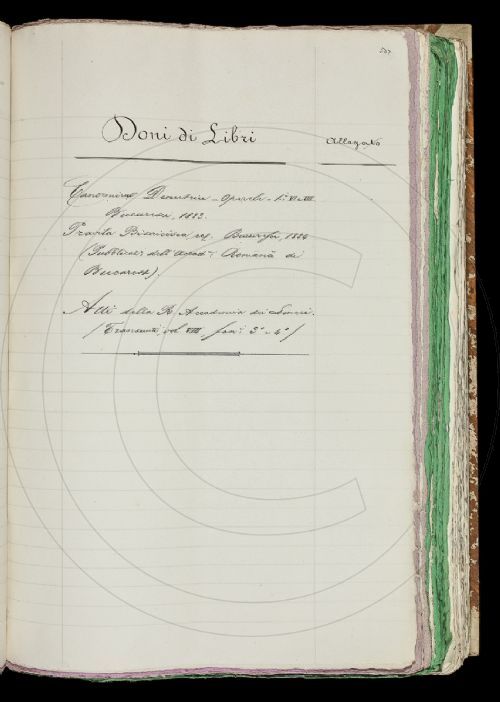 507
Doni di Libri
Allegato
Demetriu - Operele - t. VI e VIII
Bucuresci, 1883.
Pravila Bisericésca Bucuresci, 1884
(Pubblicaz. dell' Accad. Romana di
Bucarest).
Atti della R. Accademia dei Lincei.
(Transunti, vol. VIII fasc. 3º e 4º)